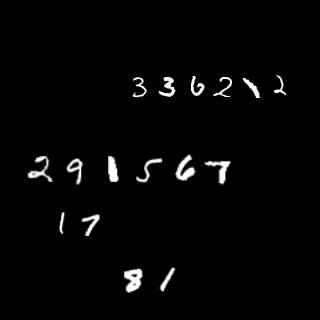 336212
291567
17
81